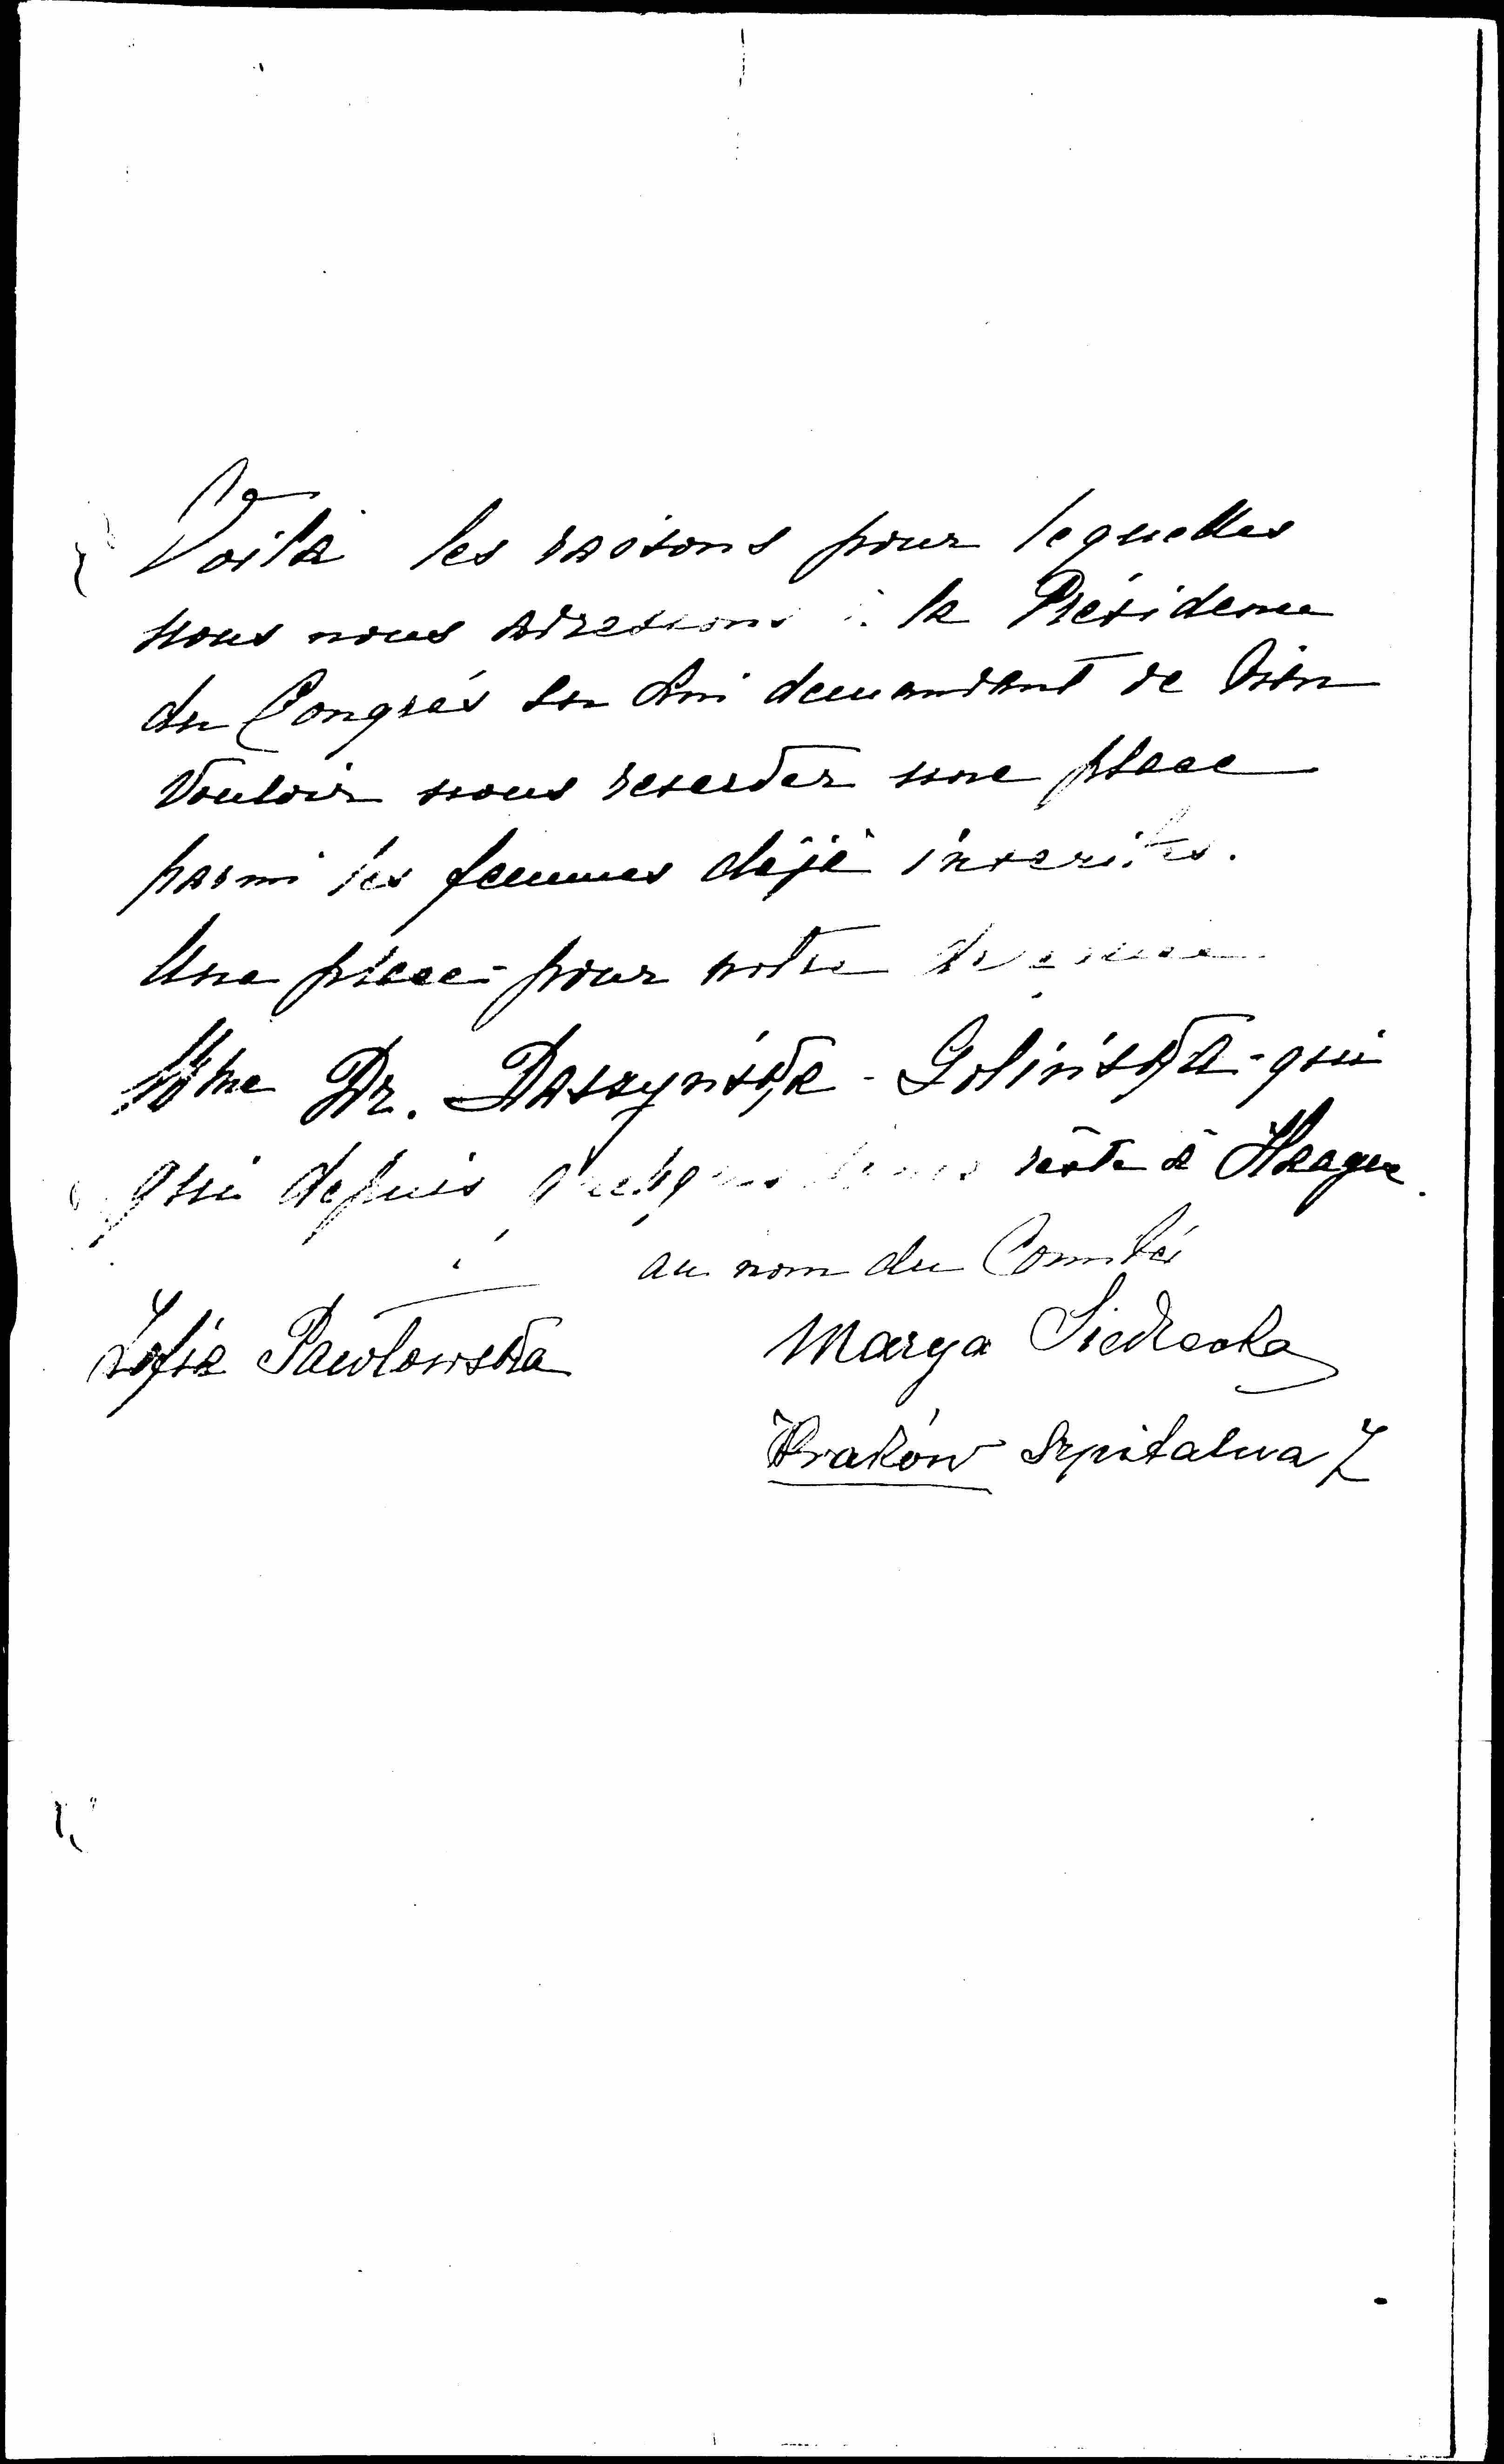 Voilà les raisons pour lequelles
nous nous adressons à la Présidence
du Congrés en Lui demandant de bien
vouloir nous reserver une place
parmi les femmes déjà inscrites.
Une place pour notre
Mme Dr. Daszyńska-Golińska-qui
qui depuis quelques reste à Haague.
au nom du Comité
Zofia Pawłowska Marya Siedlecka
Kraków Szpitalna 7